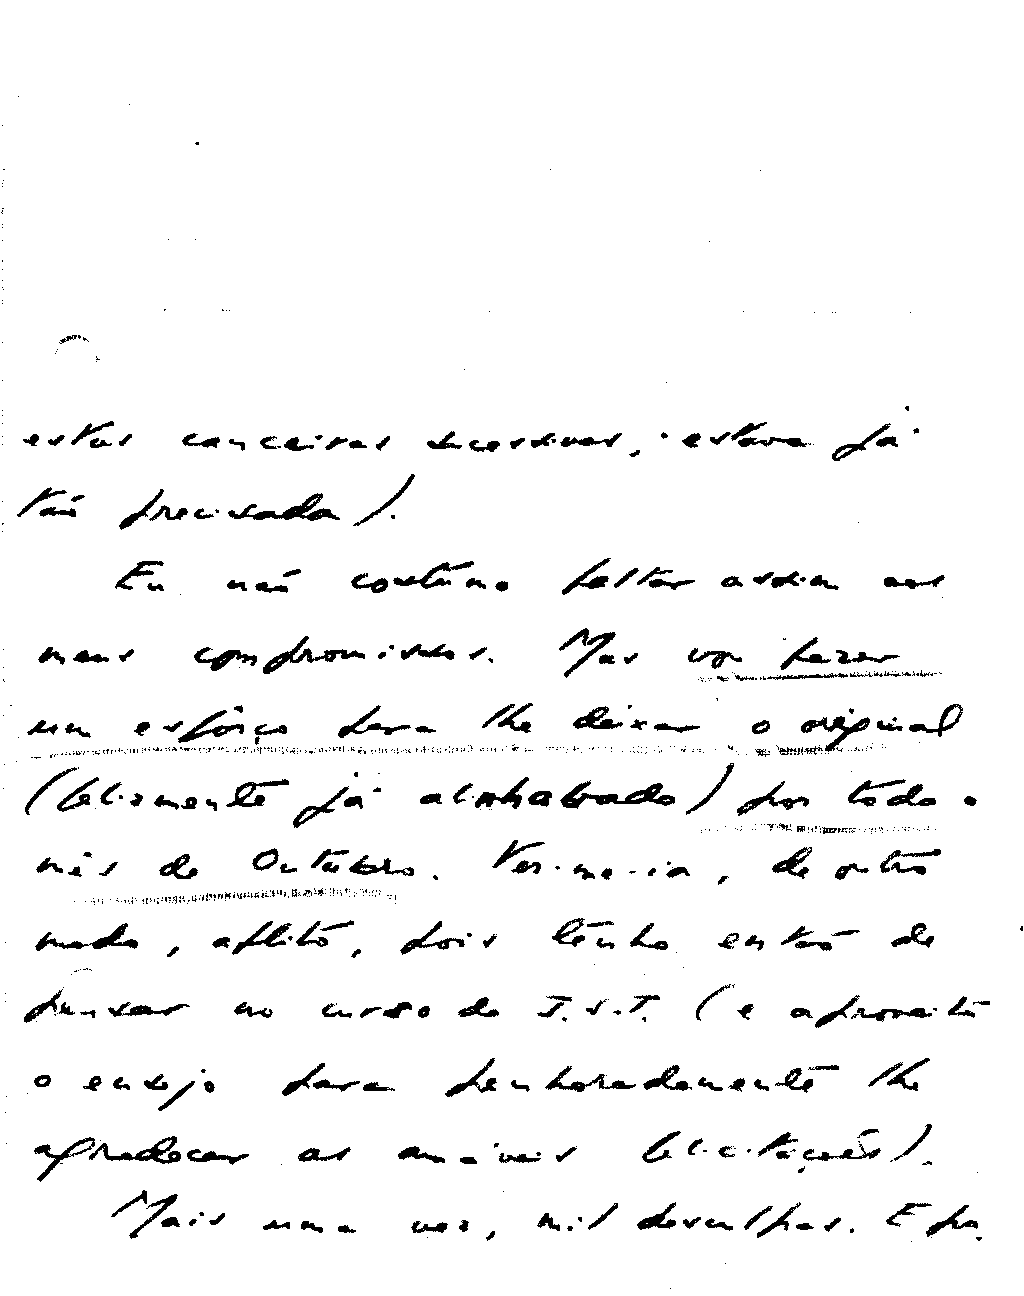 estas canceiras sucessivas, estava já
tão precisada).
Eu não costumo faltar assim aos
meus compromissos. Mas vou fazer
um esfôrço para lhe deixar o original
(felizmente já alinhavado) por todo o
mês de Outubro. Ver-me-ia, de outro
modo, aflito, pois tenho então de
pensar no curso do I.S.T. (e aproveito
o ensejo para penhoradamente lhe
agradecer as amáveis felicitações).
Mais uma vez, mil desculpas. E pa